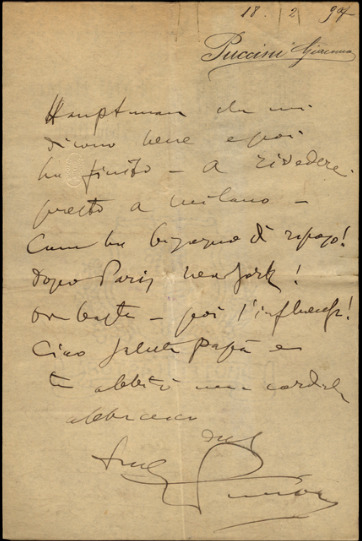 18. 2 97
Puccini Giacomo
Hauptman che mi
dicono bene e poi
ho finito - A rivederci
presto a Milano -
Com'ho bisogno di riposo!
dopo Parigi New York!
Or basta - poi l'influenza!
Ciao saluta Papà e
tu abbiti un cordiale
abbraccio
dal
tuo
Puccini